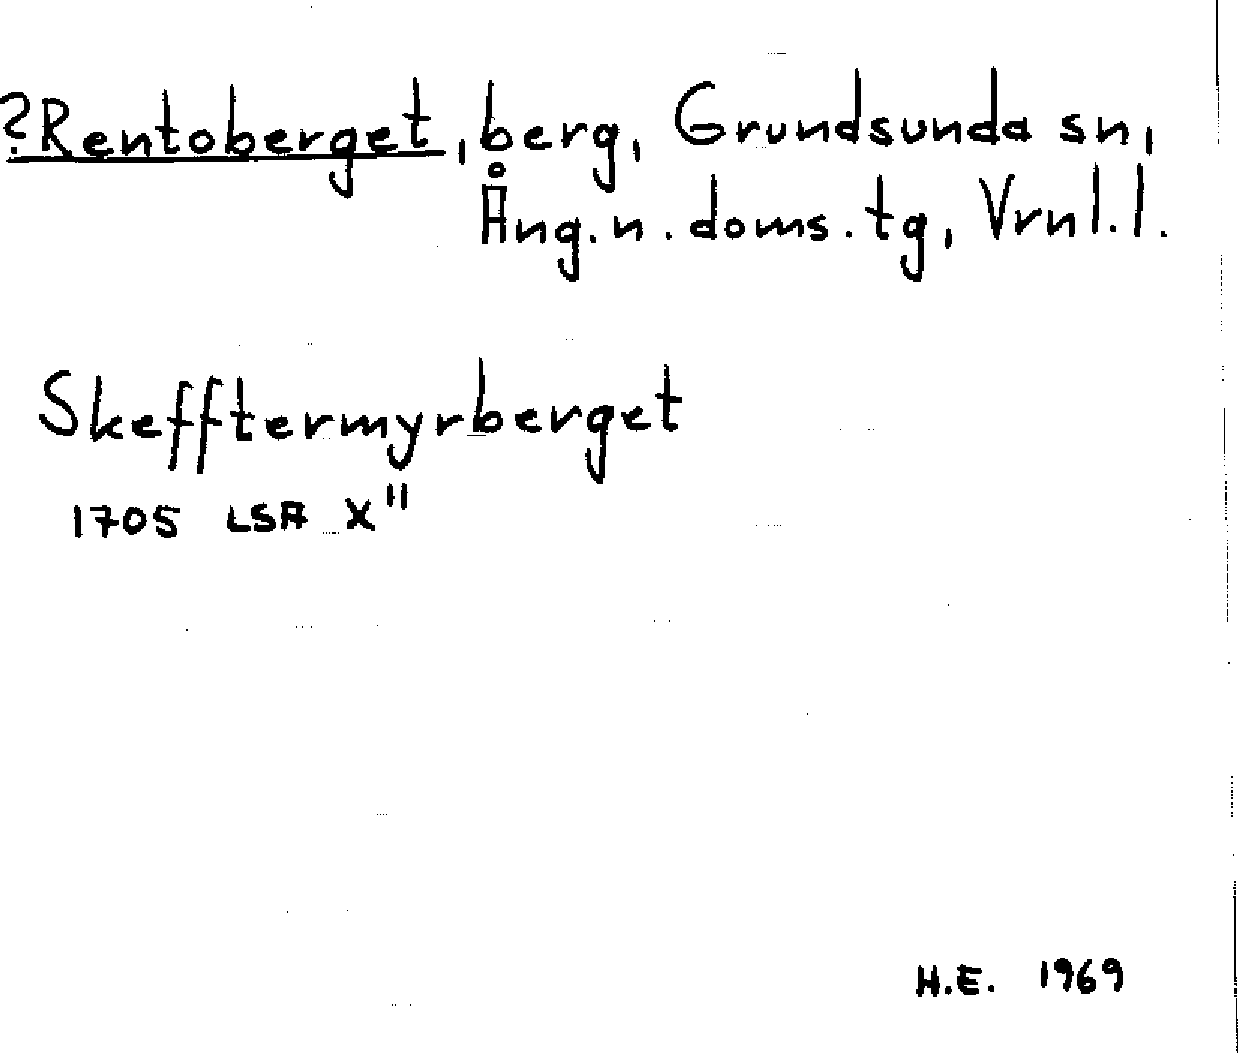 ?Rentoberget, berg, Grundsunda sn,
Ång.n.doms.tg, Vrnl.l.
Skefftermyrberget
1705 LSA X"
H.E. 1969